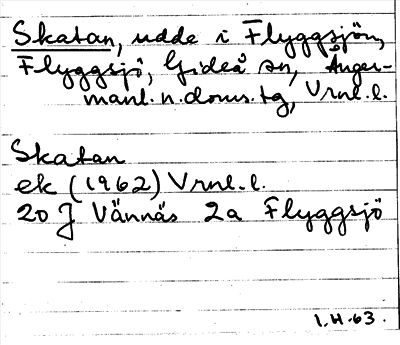 Skatan, udde i Flyggsjön,
Flyggsjö, Gideå sn, Ånger-
manl. n. doms. tg, Vrnl. l.
Skatan
ek (1962) Vrnl. l.
20 J Vännäs 2a Flyggsjö
I. H. 63.